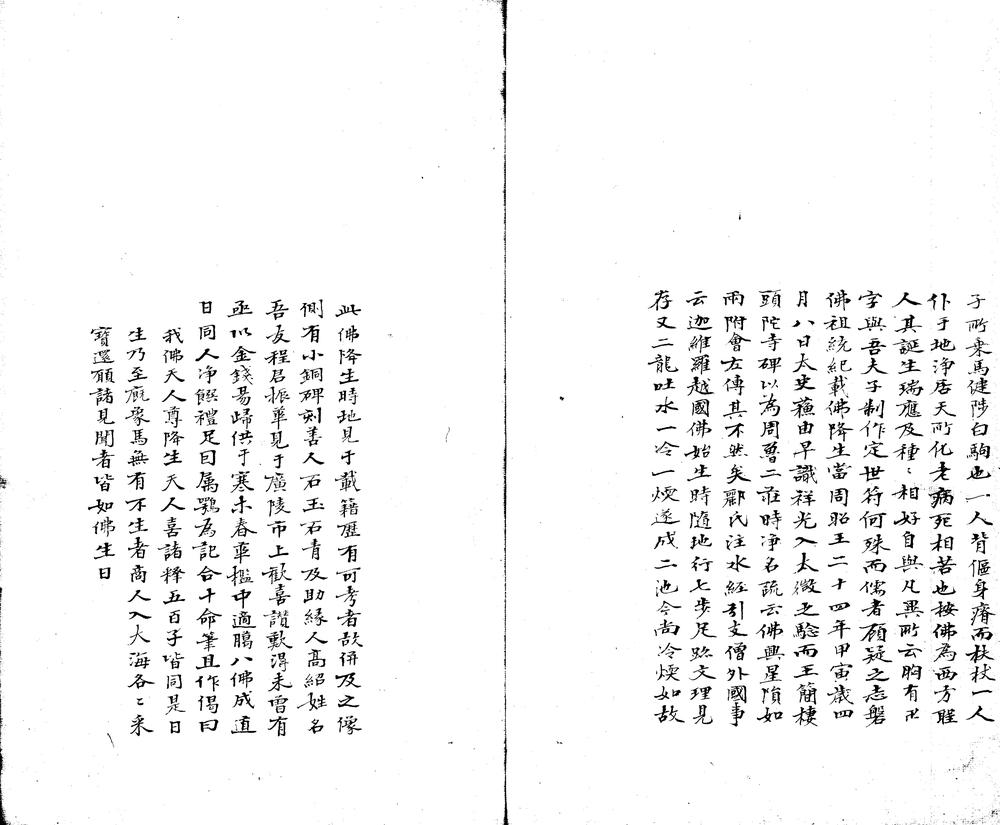 子所乗馬健陟白駒也一人背傴身瘠而杖杖一人
仆于地浄居天所化老病死相苦也按佛為西方聖
人其誕生瑞應及種〻相好自與凡異所云胸有卍
字與吾夫子制作定世符何殊而儒者顧疑之志磐
佛祖統紀載佛降生當周昭王二十四年甲寅歳四
月八日太史蘓由早識祥光入太微之騐而王簡棲
頭陀寺碑以為周魯二莊時净名疏云佛興星隕如
雨附會左傳其不然矣酈氏注水經引支僧外國事
云迦維羅越國佛始生時隨地行七步足跡文理見
存又二龍吐水一冷一煖遂成二池今尚冷煖如故
此佛降生時地見于載籍歴有可考者故併及之像
側有小銅碑刻善人石玉石青及助緣人髙紹姓名
吾友程君振華見于廣陵市上歡喜讃歎得未曽有
亟以金錢易歸供于寒木春華檻中適臈八佛成道
日同人净饌禮足曰属鶚為記合十命筆且作偈曰
我佛天人尊降生天人喜諸釋五百子皆同是日
生乃至厩象馬無有不生者商人入大海各〻采
寶還願諸見聞者皆如佛生日